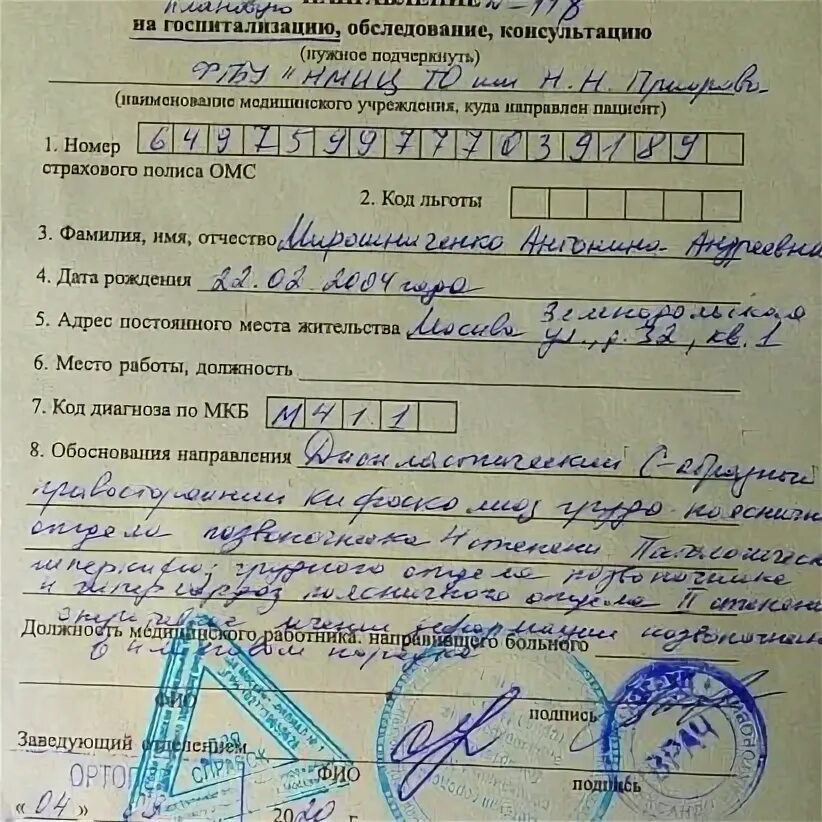 плановую
на госпитализацию, обследование, консультацию
(нужное подчеркнуть)
ФГБУ "НМИЦ ТО им Н. Н. Приорова
(наименование медицинского учреждения, куда направлен пациент)
1. Номер 6497599777039189
страхового полиса ОМС
2. Код льготы
3. Фамилия, имя, отчество Мирошниченко Антонина Андреевна
4. Дата рождения 22.02.2004 года
5. Адрес постоянного места жительства Москва Землодольская
ул., д. 32, кв. 1
6. Место работы, должность
7. Код диагноза по МКБ М41.1
8. Обоснования направления Диспластический С-образный
правосторонний кифосколиоз грудо-пояснич
отдела позвоночника 4 степени Патологическ
гиперкифоз грудного отдела позвоночника
и гиперлордоз поясничного отдела II степени
деформации позвоночник
Должность медицинского работника, направившего больного
в плановом порядке
ФИО
подпись
Заведующий отделением
ДЛЯ
СПРАВОК
ВРАЧ
ОРТОП
ФИО
подпись
"04" 2020 г